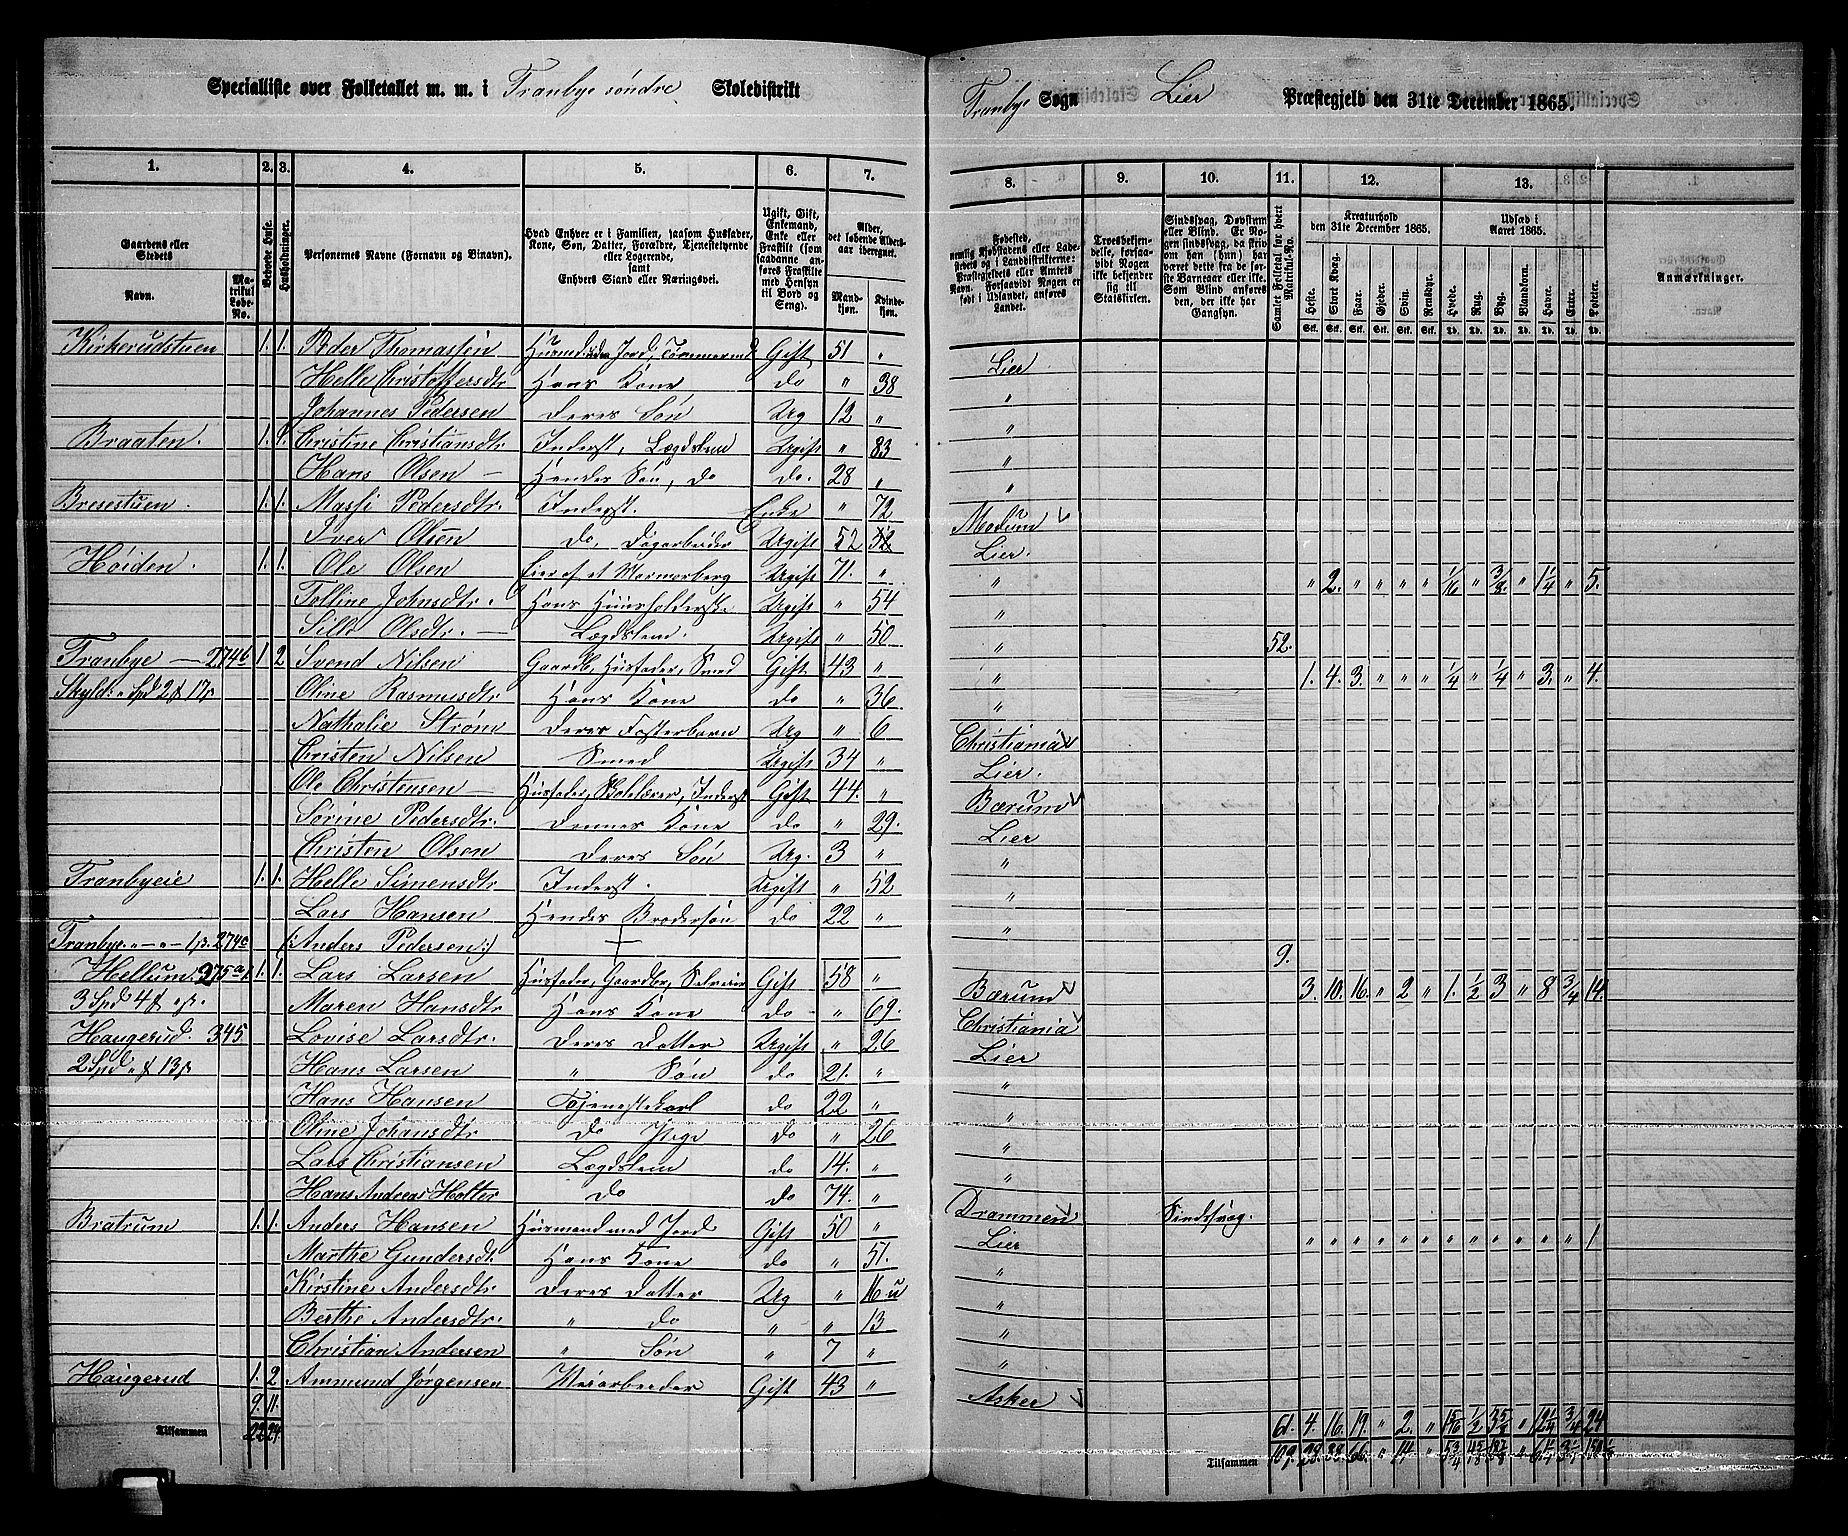 Specialliste over Folketallet m. m. i Tranbye søndre Skoledistrikt
Tranbye Sogn Lier Præstegjeld den 31te December 1865.
1. 2. 3. 4. 5. 6. 7. 8. 9. 10. 11. 12. 13.
Gaardens eller Stedets Navn. Matrikul Løbe-No.
Beboede Huse.
Husholdninger.
Personernes Navne (Fornavn og Binavn).
Hvad Enhver er i Familien, saasom Husfader, Kone, Søn, Datter, Forældre, Tjenestetyende eller Logerende, samt Enhvers Stand eller Næringsvei.
Ugift, Gift, Enkemand, Enke eller Fraskilt (saasom saadanne anføres Fraskilte med Hensyn til Bord og Seng).
Alder, det løbende Aldersaar iberegnet. Mandkjøn. Kvindekjøn.
Fødested, nemlig Kjøbstadens eller Ladestedets og i Landdistrikterne: Præstegjeldets eller Amtets Navn. Forsaavidt Nogen er født i Udlandet, anføres Landet.
Troesbekjendelse, forsaavidt Nogen ikke bekjender sig til Statskirken.
Sindssvag, Døvstum eller Blind. Er Nogen sindssvag, da skrives om han (hun) har været dette fra de første Barneaar eller ikke. Som Blind anføres den, der ikke har Gangsyn.
Samlet Folketal for hvert Matrikul-No.
Kreaturhold den 31te December 1865.
Heste. Stort Kvæg. Faar. Gjeder. Svin. Rensdyr.
Udsæd i Aaret 1865.
Hvede. Rug. Byg. Blandkorn. Havre. Erter. Poteter.
Anmærkninger.
Kirkerudstuen 1. 1. Peder Thomassen Husmd uden Jord, Tømmermd Gift 51 " Lier
Helle Christoffersdtr Hans Kone do " 38 "
Johannes Pedersen deres Søn Ug 12 " "
Braaten. 1. 1. Christine Christiansdtr Inderst, Lægdslem Ugift " 83 "
Hans Olsen — Hendes Søn, do do. 28 " "
Bresestuen. 1. 1. Massi Pedersdtr. Inderst. Enke " 72 Modum
Iver Olsen do, Dagarbeider Ugift 52 52 Lier.
Høiden. 1. 1. Ole Olsen Eier af et Marmorberg Ugift 71. " " " 2. " " " " 1/16 " 3/8 " 1 1/4 " 5.
Tolline Johnsdtr. Hans Huusholderske Ugift " 54 "
Sille Olsdtr. — Lægdslem. Ugift " 50 " 52.
Tranbye — 274b 1. 2 Svend Nilsen Gaardb, Husfader, Smed Gift 43 " " 1. 4. 3. " " " 1/4 " 1/4 " 3. " 4.
Skyld: " Spd 2 ₰ 17ß Oline Rasmusdtr Hans Kone do " 36 "
Nathalie Strøm deres Fosterbarn Ug " 6 Christiania
Christen Nilsen Smed Ugift 34 " Lier.
Ole Christensen — Husfader, Skolelærer, Inderst Gift 44. " Bærum
Sørine Pedersdtr. Dennes Kone do " 29. Lier
Christen Olsen deres Søn Ug. 3 " "
Tranbyeie 1. 1. Helle Simensdtr Inderst. Ugift " 52 "
Lars Hansen Hendes Brodersøn do 22 " "
Tranbye " — " — 1ß. 274c (:Anders Pedersen:) 9.
Hellum. 275a 1. 1. Lars Larsen Husfader, Gaardbr, Selveier Gift 58 " Bærum 3. 10. 16. " 2 " 1. 1/2 3 " 8 3/4 14.
3 Spd 4 ₰ " ß. Maren Hansdtr Hans Kone do " 69. Christiania
Haugerud. 345 Lovise Larsdtr. deres Datter Ugift " 26 Lier
2 Spd " ₰ 13ß Hans Larsen " Søn do 21. " "
Hans Hansen Tjenestekarl do 22 " "
Oline Johansdtr do Pige do " 26 "
Lars Christiansen Lægdslem do 14. " "
Hans Andreas Holter do do 74. " Drammen Sindssvag.
Bratrum 1. 1. Anders Hansen Husmand med Jord Gift 50 " Lier " " " " " " " " " " " " 1
Marthe Gundersdtr Hans Kone do " 51. "
Kirstine Andersdtr deres Datter Ug " 16 "
Berthe Andersdtr. " do " " 13 "
Christian Andersen " Søn " 7 " "
Haugerud 1. 2 Ammund Jørgensen Veiarbeider Gift 43 " Asker
9. 11. 61. 4. 16. 19. " 2 " 1 5/16 1/2 3 5/8 " 12 1/4 3/4 24
Tilsammen 22 24
Tilsammen 109.